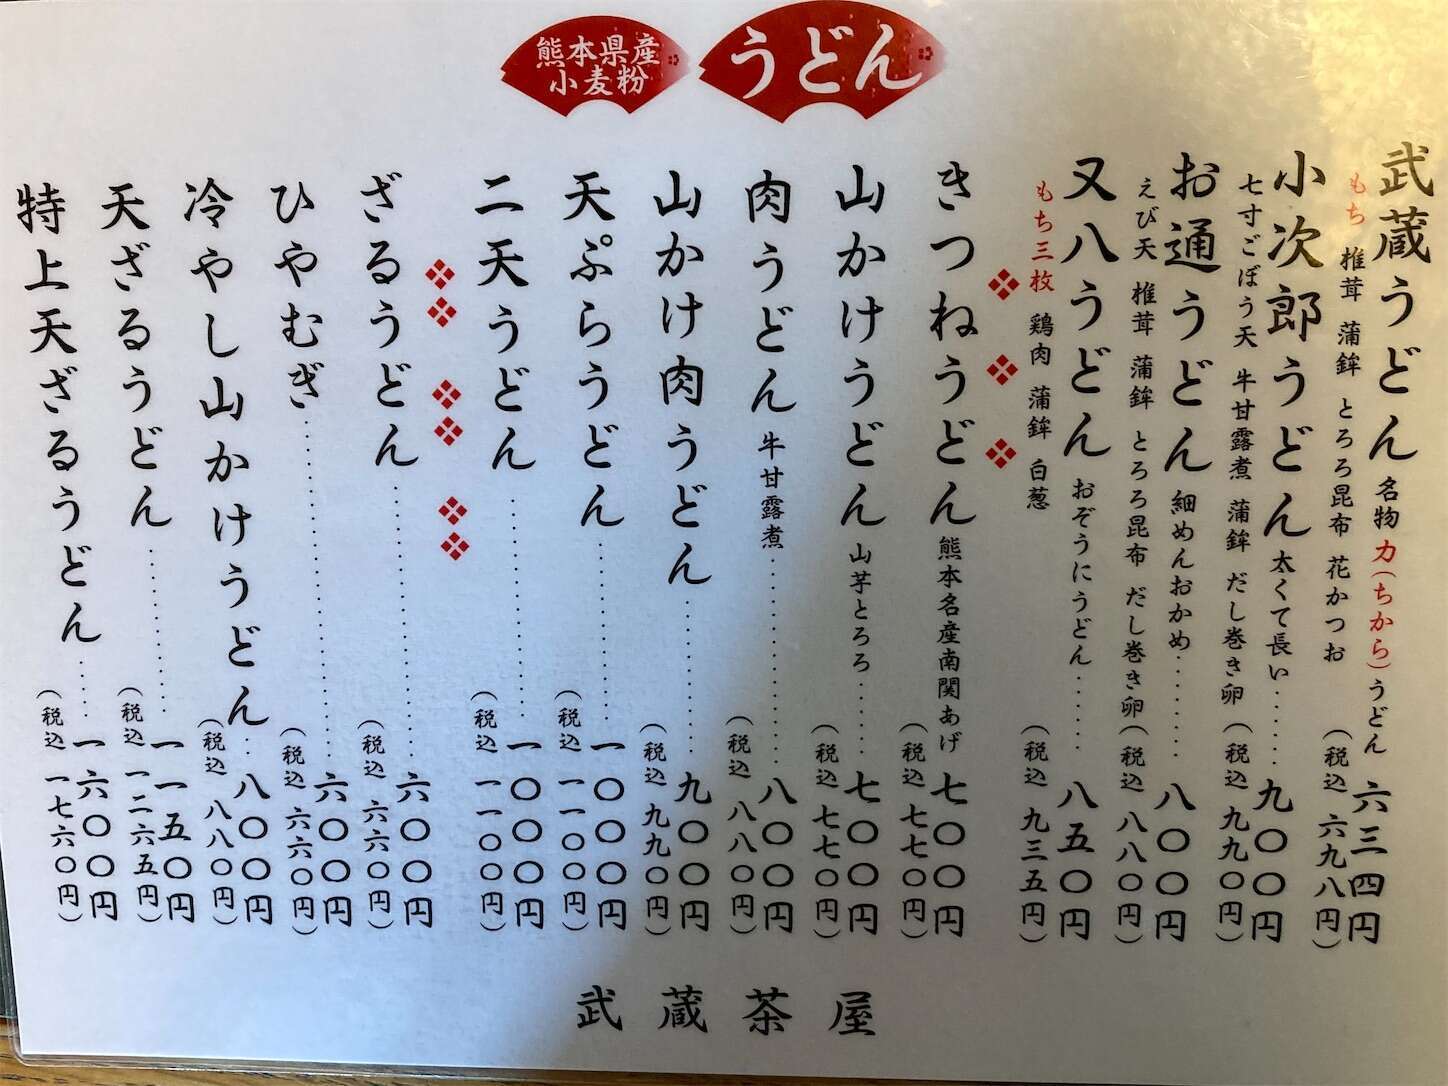 うどん
熊本県産
小麦粉
武蔵うどん 名物力(ちから)うどん 六三四円
もち 椎茸 蒲鉾 とろろ昆布 花かつお (税込 六九八円)
小次郎うどん 太くて長い……… 九〇〇円
七寸ごぼう天 牛甘露煮 蒲鉾 だし巻き卵 (税込 九九〇円)
お通うどん 細めんおかめ……… 八〇〇円
えび天 椎茸 蒲鉾 とろろ昆布 だし巻き卵 (税込 八八〇円)
又八うどん おぞうにうどん……… 八五〇円
もち三枚 鶏肉 蒲鉾 白葱 (税込 九三五円)
きつねうどん 熊本名産南関あげ 七〇〇円
(税込 七七〇円)
山かけうどん 山芋とろろ……… 七〇〇円
(税込 七七〇円)
肉うどん 牛甘露煮……… 八〇〇円
(税込 八八〇円)
山かけ肉うどん……… 九〇〇円
(税込 九九〇円)
天ぷらうどん……… 一〇〇〇円
(税込 一一〇〇円)
二天うどん……… 一〇〇〇円
(税込 一一〇〇円)
ざるうどん……… 六〇〇円
(税込 六六〇円)
ひやむぎ……… 六〇〇円
(税込 六六〇円)
冷やし山かけうどん… 八〇〇円
(税込 八八〇円)
天ざるうどん……… 一一五〇円
(税込 一二六五円)
特上天ざるうどん…… 一六〇〇円
(税込 一七六〇円)
武蔵茶屋